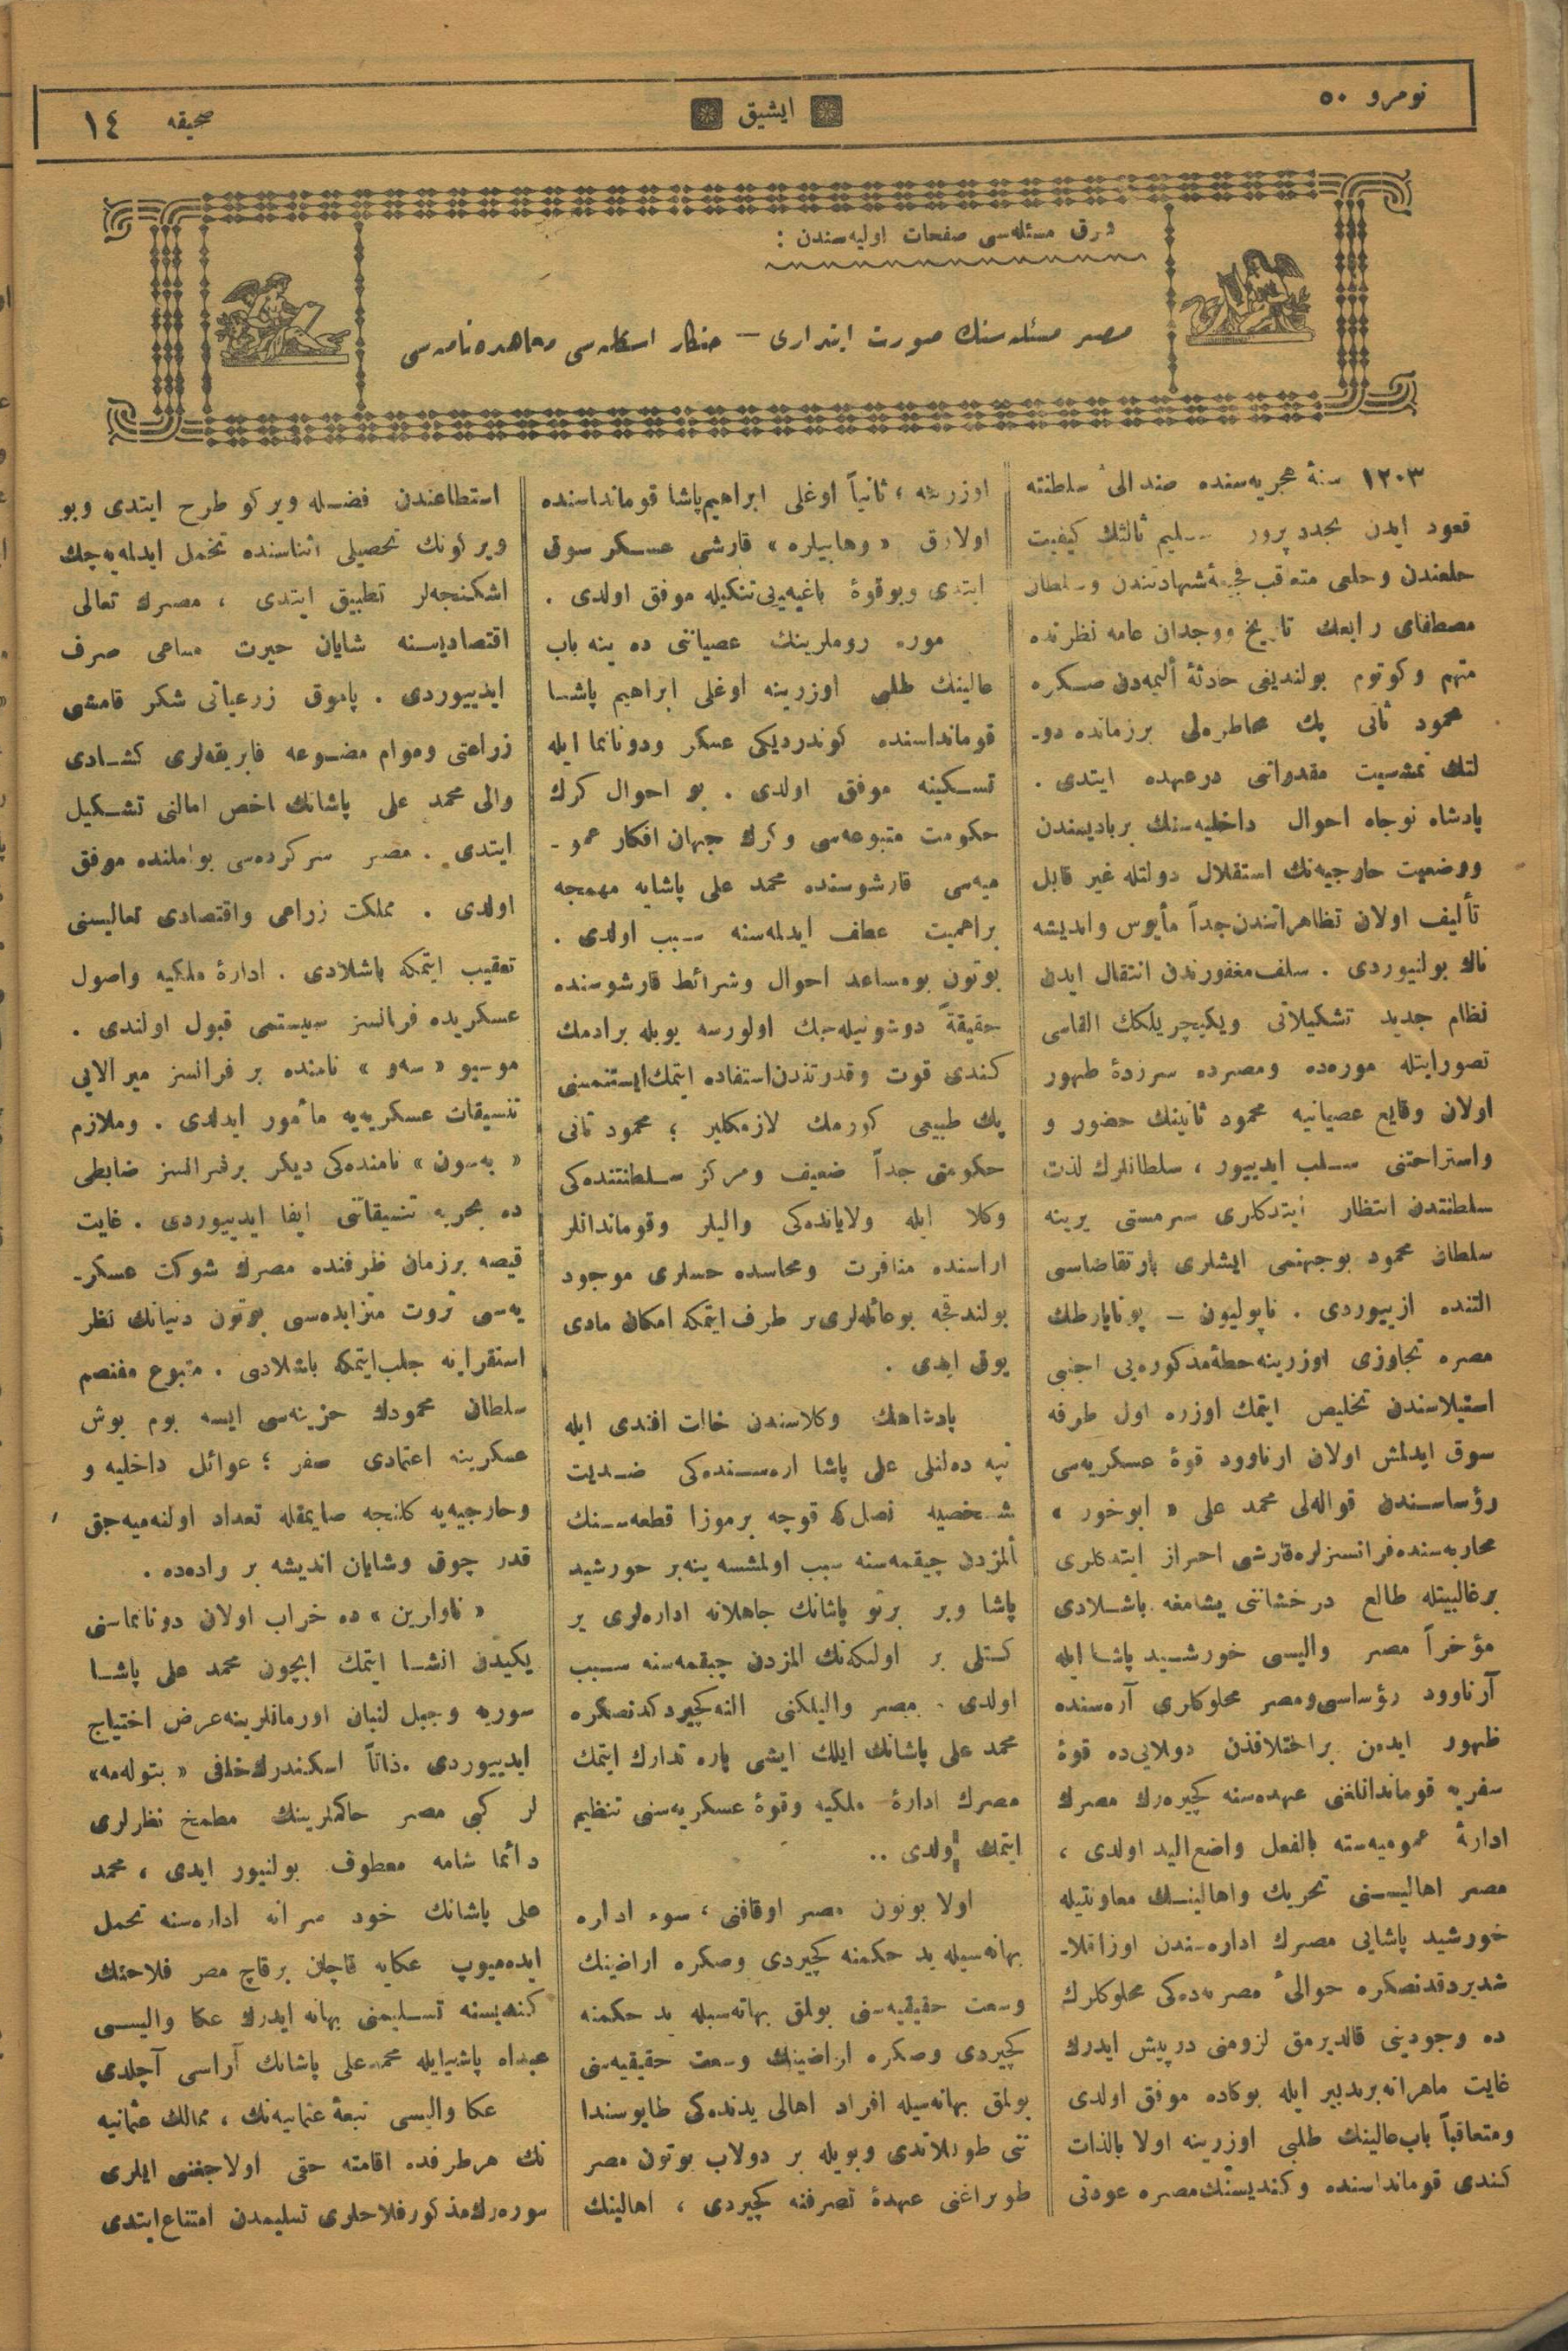 نومرو ٥٠
ايشيق
صحيفه ١٤
شرق مسئله‌سی صفحات اوليه‌سندن :
مصر مسئله‌سنك صورت ابتداری — خنكار اسكله‌سی معاهده‌نامه‌سی
١٢٠٣ سنۀ هجريه‌سنده صندالیٔ سلطنته
قعود ايدن تجدد پرور سليم ثالثك كيفيت
خلعندن و خلعی متعاقب فجيعۀ شهادتندن و سلطان
مصطفای رابعك تاريخ ووجدان عامه نظرنده
متهم و كوتوم بولنديغی حادثۀ أليمه‌دن صكره
محمود ثانی پك مخاطره‌لی برزمانده دو-
لتك تمشيت مقدراتنی درعهده ايتدی .
پادشاه نوجاه احوال داخليه‌سنك برباديسندن
ووضعيت خارجيه‌نك استقلال دولتله غير قابل
تأليف اولان تظاهراتندن جداً مأيوس وانديشه
ناك بولنيوردی . سلف مغفورندن انتقال ايدن
نظام جديد تشكيلاتی ويكيچريلكك الغاسی
تصورايتله موره‌ده ومصرده سرزدۀ ظهور
اولان وقايع عصيانيه محمود ثانينك حضور و
واستراحتنی سلب ايدييور ، سلطانلرك لذت
سلطنتدن انتظار ايتدكلری سرمستی يرينه
سلطان محمود بوجهنمی ايشلری بارتقاضاسی
التنده ازيييوردی . ناپوليون — پوناپارطك
مصره تجاوزی اوزرينه خطۀ مذكوره‌يی اجنبی
استيلاسندن تخليص ايتمك اوزره اول طرفه
سوق ايدلمش اولان ارناوود قوۀ عسكريه‌سی
رؤساسندن قواله‌لی محمد علی « ابوخور »
محاربه‌سنده فرانسزلره قارشی احراز ايتدكلری
برغالبيتله طالع درخشاننی يشامغه باشلادی
مؤخراً مصر واليسی خورشيد پاشا ايله
آرناوود رؤساسی ومصر مملوكلری آره‌سنده
ظهور ايدن براختلافدن دولايی‌ده قوۀ
سفريه قومانداناغنی عهده‌سنه كچيره‌رك مصرك
ادارۀ عموميه‌سنه بالفعل واضع اليد اولدی ،
مصر اهاليسنی تحريك واهالينك معاونتيله
خورشيد پاشايی مصرك اداره‌سندن اوزاقلا-
شديردقدنصكره حوالیٔ مصريه‌ده‌كی مملوكلرك
ده وجودينی قالديرمق لزومنی درپيش ايدرك
غايت ماهرانه برتدبير ايله بوكاده موفق اولدی
ومتعاقباً باب عالينك طلبی اوزرينه اولا بالذات
كندی قومانداسنده وكنديسنك مصره عودتی
اوزرينه ، ثانياً اوغلی ابراهيم پاشا قومانداسنده
اولارق « وهابيلره » قارشی عسكر سوق
ايتدی وبوقوۀ باغيه‌يی تنكيله موفق اولدی .
موره روملرينك عصياننی ده ينه باب
عالينك طلبی اوزرينه اوغلی ابراهيم پاشا
قومانداسنده كوندرديكی عسكر ودونانما ايله
تسكينه موفق اولدی . بو احوال كرك
حكومت متبوعه‌سی وكرك جهان افكار عمو-
ميه‌سی قارشوسنده محمد علی پاشايه مهمجه
براهميت عطف ايدلمه‌سنه سبب اولدی .
بوتون بومساعد احوال وشرائط قارشوسنده
حقيقةً دوشونيله‌جك اولورسه بويله برادمك
كندی قوت وقدرتندن استفاده ايتمك ايستنمسنی
پك طبيعی كورمك لازمكلير ؛ محمود ثانی
حكومتی جداً ضعيف ومركز سلطنتنده‌كی
وكلا ايله ولاياتده‌كی واليلر وقوماندانلر
اراسنده منافرت ومحاسده حسلری موجود
بولندقجه بوعائله‌لری بر طرف ايتمكه امكان مادی
يوق ايدی .
پادشاهك وكلاسندن خالت افندی ايله
تپه ده‌لنلی علی پاشا اره‌سنده‌كی ضديت
شخصيه نصل كه قوجه برموزا قطعه‌سنك
ألمزدن چيقمه‌سنه سبب اولمشسه ينه بر خورشيد
پاشا وبر برتو پاشانك جاهلانه اداره‌لری بر
كستلی بر اولكه‌نك المزدن چيقمه‌سنه سبب
اولدی . مصر واليلكنی النه كچيردكدنصكره
محمد علی پاشانك ايلك ايشی پاره تدارك ايتمك
مصرك ادارۀ ملكيه وقوۀ عسكريه‌سنی تنظيم
ايتمك اولدی ..
اولا بوتون مصر اوقافنی ، سوء اداره
بهانه‌سيله يد حكمنه كچيردی وصكره اراضينك
وسعت حقيقيه‌سنی بولمق بهانه‌سيله يد حكمنه
كچيردی وصكره اراضينك وسعت حقيقيه‌سنی
بولمق بهانه‌سيله افراد اهالی يدنده‌كی طاپوسندا
تنی طوپلاتدی وبويله بر دولاب بوتون مصر
طوپراغنی عهدۀ تصرفنه كچيردی ، اهالينك
استطاعتدن فضله ويركو طرح ايتدی وبو
ويركونك تحصيلی اثناسنده تحمل ايدلمه‌يه‌جك
اشكنجه‌لر تطبيق ايتدی ، مصرك تعالی
اقتصاديسنه شايان حيرت مساعی صرف
ايدييوردی . پاموق زرعياتی شكر قامشی
زراعتی ومواد مصنوعه فابريقه‌لری كشادی
والی محمد علی پاشانك اخص امالنی تشكيل
ايتدی . مصر سركرده‌سی بواملنده موفق
اولدی . مملكت زراعی واقتصادی تعاليسنی
تعقيب ايتمكه باشلادی . ادارۀ ملكيه واصول
عسكريده فرانسز سيستمی قبول اولندی .
موسيو « سه‌و » نامنده بر فرانسز ميرالايی
تنسيقات عسكريه‌يه مأمور ايدلدی . وملازم
« به‌سون » نامنده‌كی ديكر برفرانسز ضابطی
ده بحريه تنسيقاتنی ايفا ايدييوردی . غايت
قيصه برزمان ظرفنده مصرك شوكت عسكر-
يه‌سی ثروت متزايده‌سی بوتون دنيانك نظر
استقراينه جلب ايتمكه باشلادی . متبوع مفخم
سلطان محمودك خزينه‌سی ايسه بوم بوش
عسكرينه اعتمادی صفر ؛ عوائل داخليه و
وخارجيه‌يه كلنجه صايمقله تعداد اولنه‌ميه‌جق
قدر چوق وشايان انديشه بر راده‌ده .
« ناوارين » ده خراب اولان دونانماسنی
يكيدن انشا ايتمك ايچون محمد علی پاشا
سوريه وجبل لبنان اورمانلرينه عرض احتياج
ايدييوردی . ذاتاً اسكندرك خلفی « بتوله‌مه»
لر كبی مصر حاكملرينك مطمح نظرلری
دائما شامه معطوف بولنيور ايدی ، محمد
علی پاشانك خود سرانه اداره‌سنه تحمل
ايده‌ميوپ عكايه قاچان برقاچ مصر فلاحنك
كنديسنه تسليمنی بهانه ايدرك عكا واليسی
عبدالله پاشايله محمد علی پاشانك آراسی آچلدی
عكا واليسی تبعۀ عثمانيه‌نك ، ممالك عثمانيه
نك هرطرفده اقامته حقی اولاجغنی ايلری
سوره‌رك مذكور فلاحلری تسليمدن امتناع ايتدی